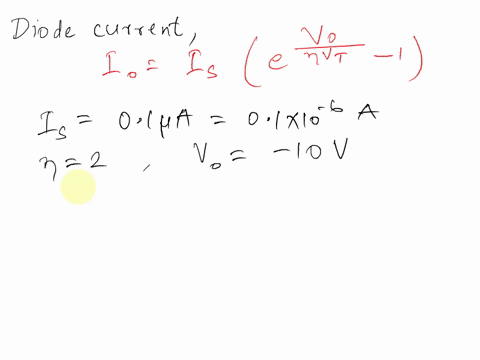 Diode current,
I₀ = Iₛ (e^(V₀/ηV_T) - 1)
Iₛ = 0.1μA = 0.1×10⁻⁶ A
η = 2 , V₀ = -10 V